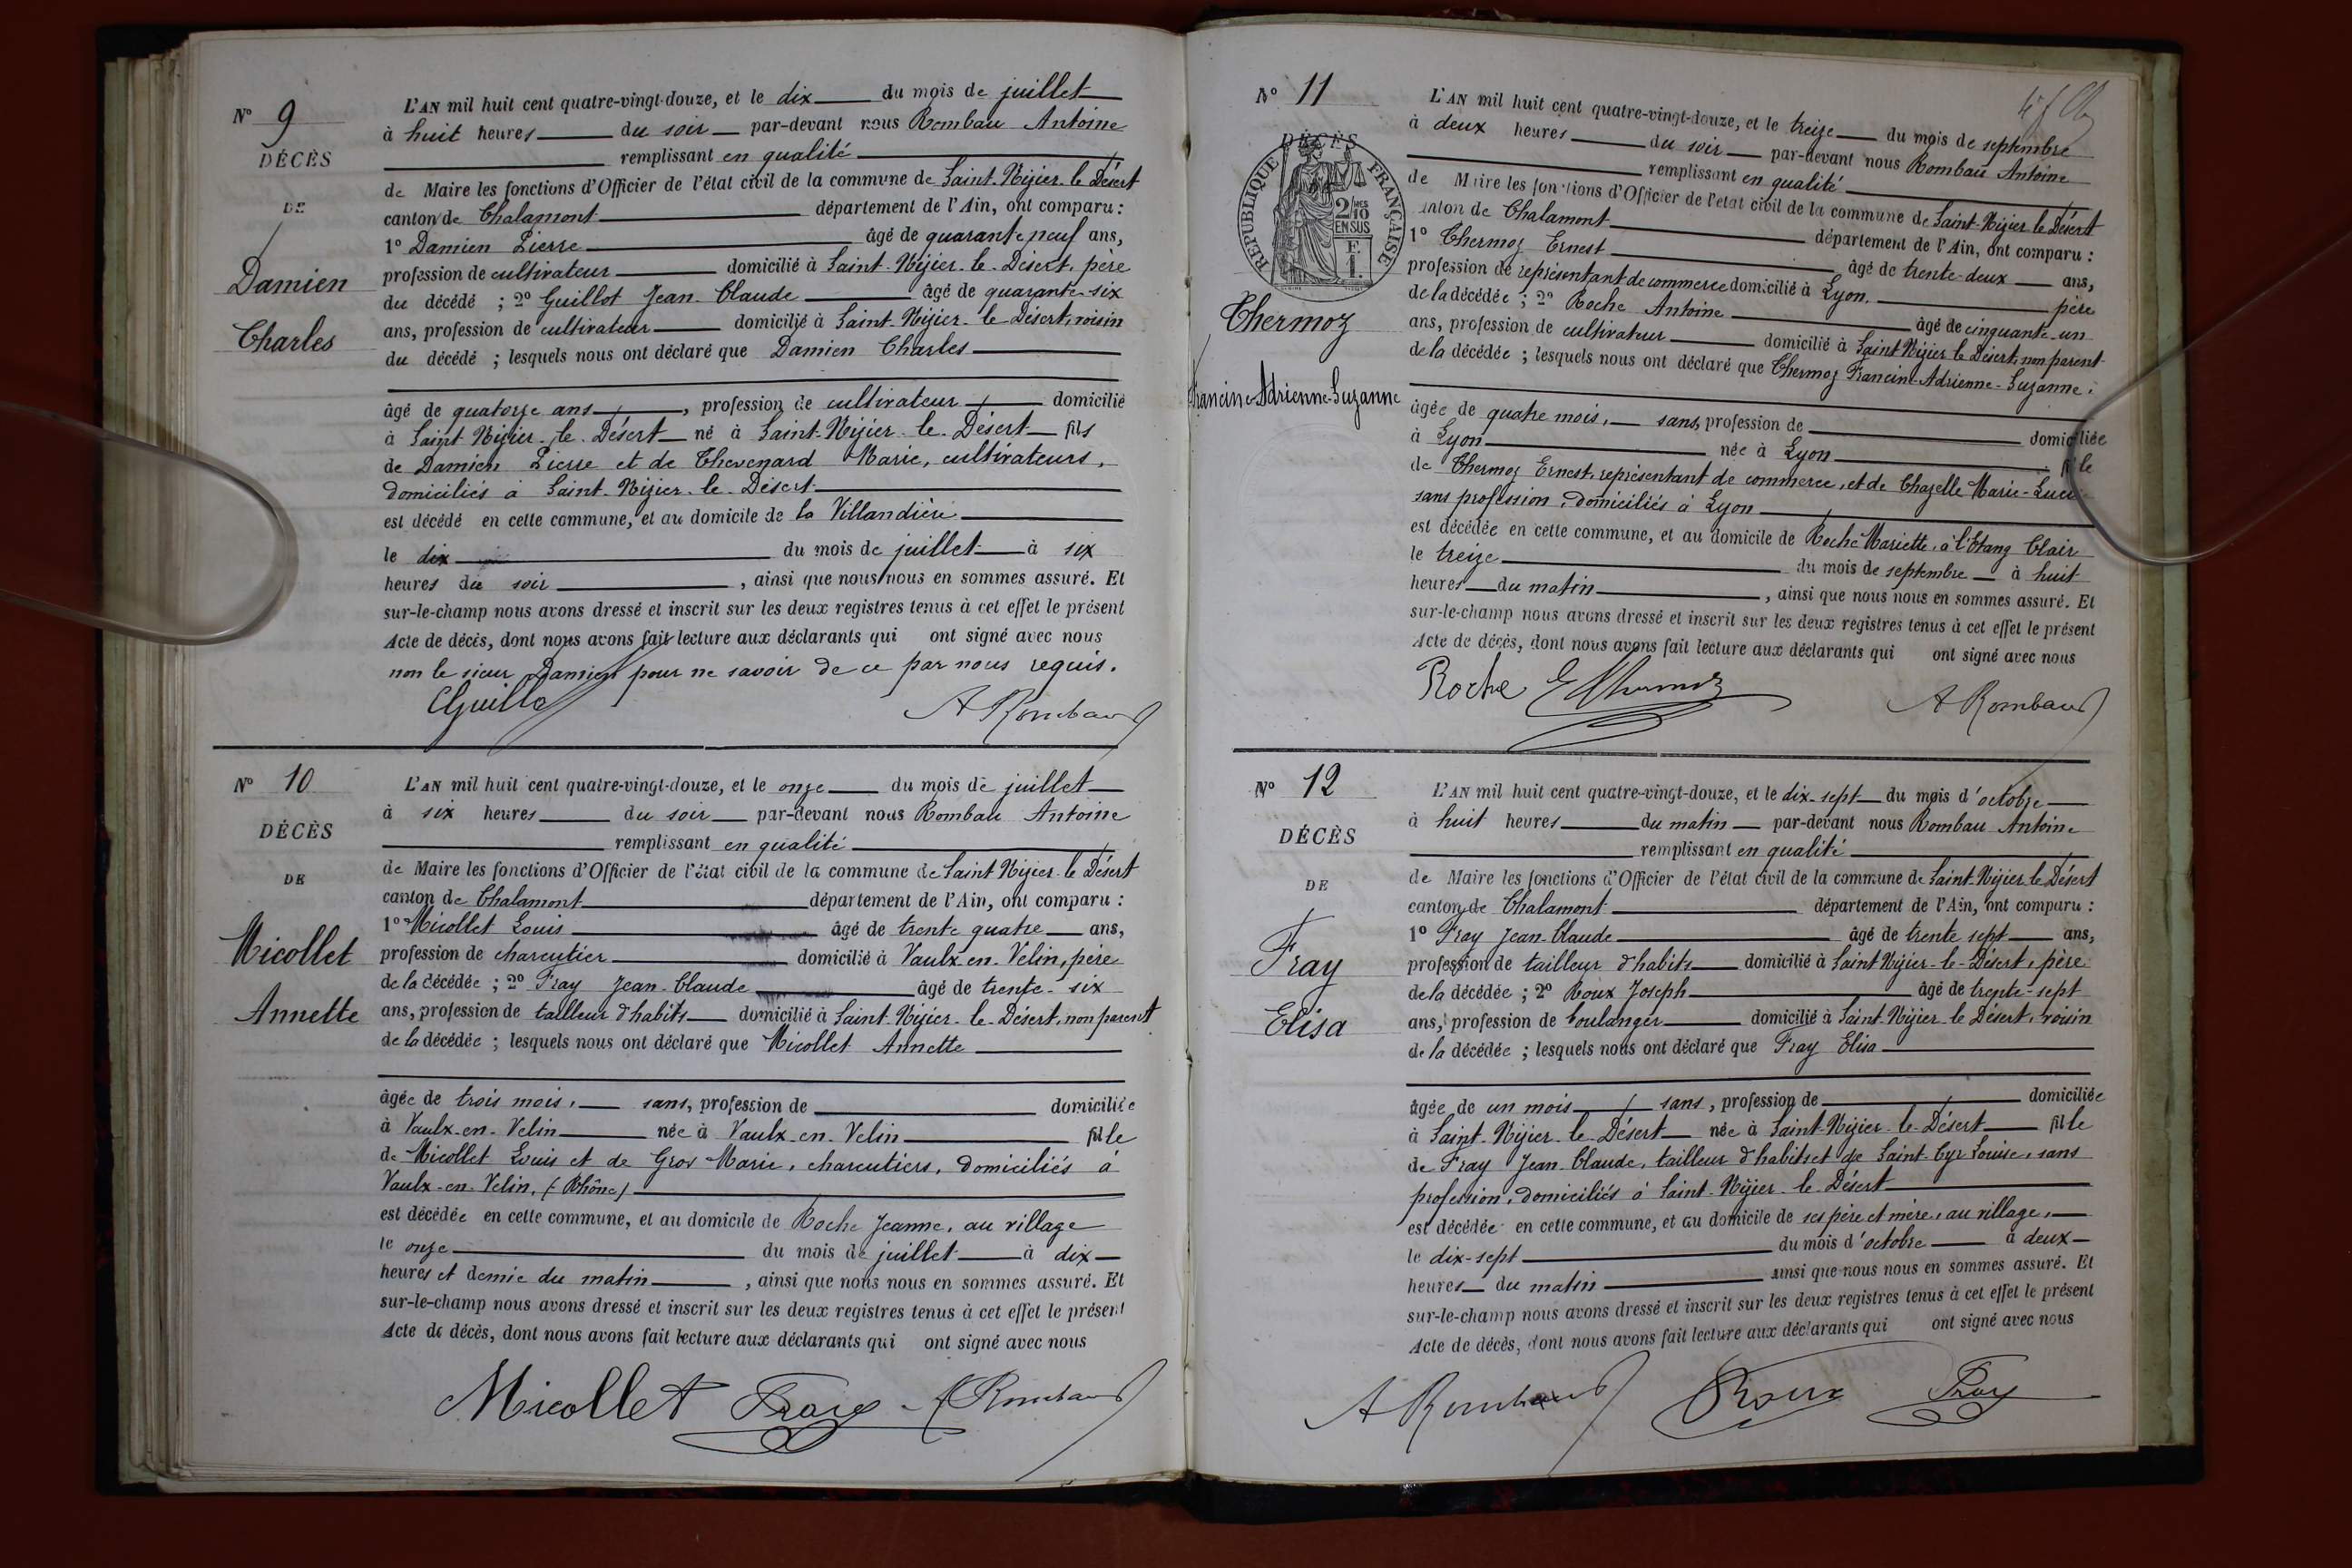 N° 9
DÉCÈS
DE
Damien
Charles
L'AN mil huit cent quatre-vingt-douze, et le dix du mois de juillet
à huit heures du soir par-devant nous Rombau Antoine
remplissant en qualité
de Maire les fonctions d'Officier de l'état civil de la commune de Saint-Nizier-le-Désert
canton de Chalamont département de l'Ain, ont comparu :
1° Damien Pierre âgé de quarante neuf ans,
profession de cultivateur domicilié à Saint-Nizier-le-Désert, père
du décédé ; 2° Guillot Jean-Claude âgé de quarante-six
ans, profession de cultivateur domicilié à Saint-Nizier-le-Désert, voisin
du décédé ; lesquels nous ont déclaré que Damien Charles
âgé de quatorze ans, profession de cultivateur domicilié
à Saint-Nizier-le-Désert né à Saint-Nizier-le-Désert fils
de Damien Pierre et de Thevenard Marie, cultivateurs,
domiciliés à Saint-Nizier-le-Désert
est décédé en cette commune, et au domicile de la Villandière
le dix du mois de juillet à six
heures du soir, ainsi que nous nous en sommes assuré. Et
sur-le-champ nous avons dressé et inscrit sur les deux registres tenus à cet effet le présent
Acte de décès, dont nous avons fait lecture aux déclarants qui ont signé avec nous
non le sieur Damien pour ne savoir de ce par nous requis.
CGuillot A Rombau
N° 10
DÉCÈS
DE
Micollet
Annette
L'AN mil huit cent quatre-vingt-douze, et le onze du mois de juillet
à six heures du soir par-devant nous Rombau Antoine
remplissant en qualité
de Maire les fonctions d'Officier de l'état civil de la commune de Saint Nizier-le-Désert
canton de Chalamont département de l'Ain, ont comparu :
1° Micollet Louis âgé de trente quatre ans,
profession de charcutier domicilié à Vaulx-en-Velin, père
de la décédée ; 2° Fray Jean-Claude âgé de trente-six
ans, profession de tailleur d'habits domicilié à Saint-Nizier-le-Désert, non parent
de la décédée ; lesquels nous ont déclaré que Micollet Annette
âgée de trois mois, sans, profession de domiciliée
à Vaulx-en-Velin née à Vaulx-en-Velin fille
de Micollet Louis et de Gros Marie, charcutiers, domiciliés à
Vaulx-en-Velin, (Rhône)
est décédée en cette commune, et au domicile de Roche Jeanne, au village
le onze du mois de juillet à dix
heures et demie du matin, ainsi que nous nous en sommes assuré. Et
sur-le-champ nous avons dressé et inscrit sur les deux registres tenus à cet effet le présent
Acte de décès, dont nous avons fait lecture aux déclarants qui ont signé avec nous
Micollet Fray A Rombau
N° 11
DÉCÈS
RÉPUBLIQUE FRANÇAISE
2/10 MES
EN SUS
F
1.
Thermoz
Francine-Adrienne-Suzanne
L'AN mil huit cent quatre-vingt-douze, et le treize du mois de septembre
à deux heures du soir par-devant nous Rombau Antoine
remplissant en qualité
de Maire les fonctions d'Officier de l'état civil de la commune de Saint-Nizier le Désert
canton de Chalamont département de l'Ain, ont comparu :
1° Thermoz Ernest âgé de trente-deux ans,
profession de représentant de commerce domicilié à Lyon, père
de la décédée ; 2° Roche Antoine âgé de cinquante-un
ans, profession de cultivateur domicilié à Saint Nizier le Désert, non parent
de la décédée ; lesquels nous ont déclaré que Thermoz Francine-Adrienne-Suzanne,
âgée de quatre mois, sans, profession de domiciliée
à Lyon née à Lyon fille
de Thermoz Ernest, représentant de commerce, et de Chazelle Marie-Lucie
sans profession, domiciliés à Lyon
est décédée en cette commune, et au domicile de Roche Mariette, à l'Etang Clair
le treize du mois de septembre à huit
heures du matin, ainsi que nous nous en sommes assuré. Et
sur-le-champ nous avons dressé et inscrit sur les deux registres tenus à cet effet le présent
Acte de décès, dont nous avons fait lecture aux déclarants qui ont signé avec nous
Roche E Thermoz A Rombau
N° 12
DÉCÈS
DE
Fray
Elisa
L'AN mil huit cent quatre-vingt-douze, et le dix-sept du mois d'octobre
à huit heures du matin par-devant nous Rombau Antoine
remplissant en qualité
de Maire les fonctions d'Officier de l'état civil de la commune de Saint-Nizier le Désert
canton de Chalamont département de l'Ain, ont comparu :
1° Fray Jean-Claude âgé de trente sept ans,
profession de tailleur d'habits domicilié à Saint Nizier-le-Désert, père
de la décédée ; 2° Roux Joseph âgé de trente-sept
ans, profession de boulanger domicilié à Saint-Nizier-le Désert, voisin
de la décédée ; lesquels nous ont déclaré que Fray Elisa
âgée de un mois sans, profession de domiciliée
à Saint-Nizier-le-Désert née à Saint-Nizier-le-Désert fille
de Fray Jean Claude, tailleur d'habits et de Saint-Cyr Louise, sans
profession, domiciliés à Saint-Nizier-le-Désert
est décédée en cette commune, et au domicile de ses père et mère, au village,
le dix-sept du mois d'octobre à deux
heures du matin ainsi que nous nous en sommes assuré. Et
sur-le-champ nous avons dressé et inscrit sur les deux registres tenus à cet effet le présent
Acte de décès, dont nous avons fait lecture aux déclarants qui ont signé avec nous
A Rombau Roux Fray